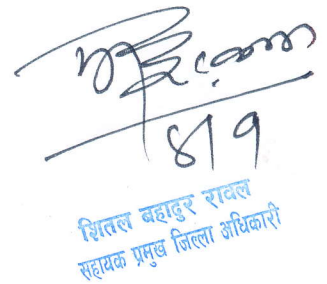 ४/१
शितल बहादुर रावल
सहायक प्रमुख जिल्ला अधिकारी